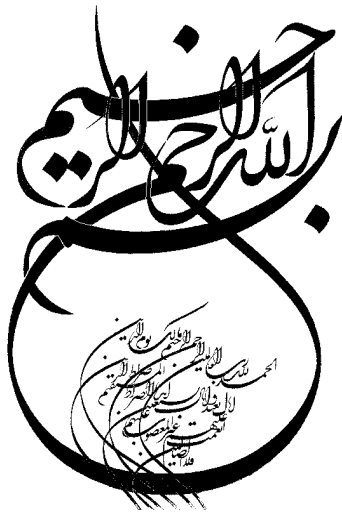 بسم الله الرحمن الرحیم
الحمد لله رب العالمین الرحمن الرحیم مالک یوم الدین
ایاک نعبد و ایاک نستعین اهدنا الصراط المستقیم
صراط الذین انعمت علیهم غیر المغضوب علیهم
ولا الضالین